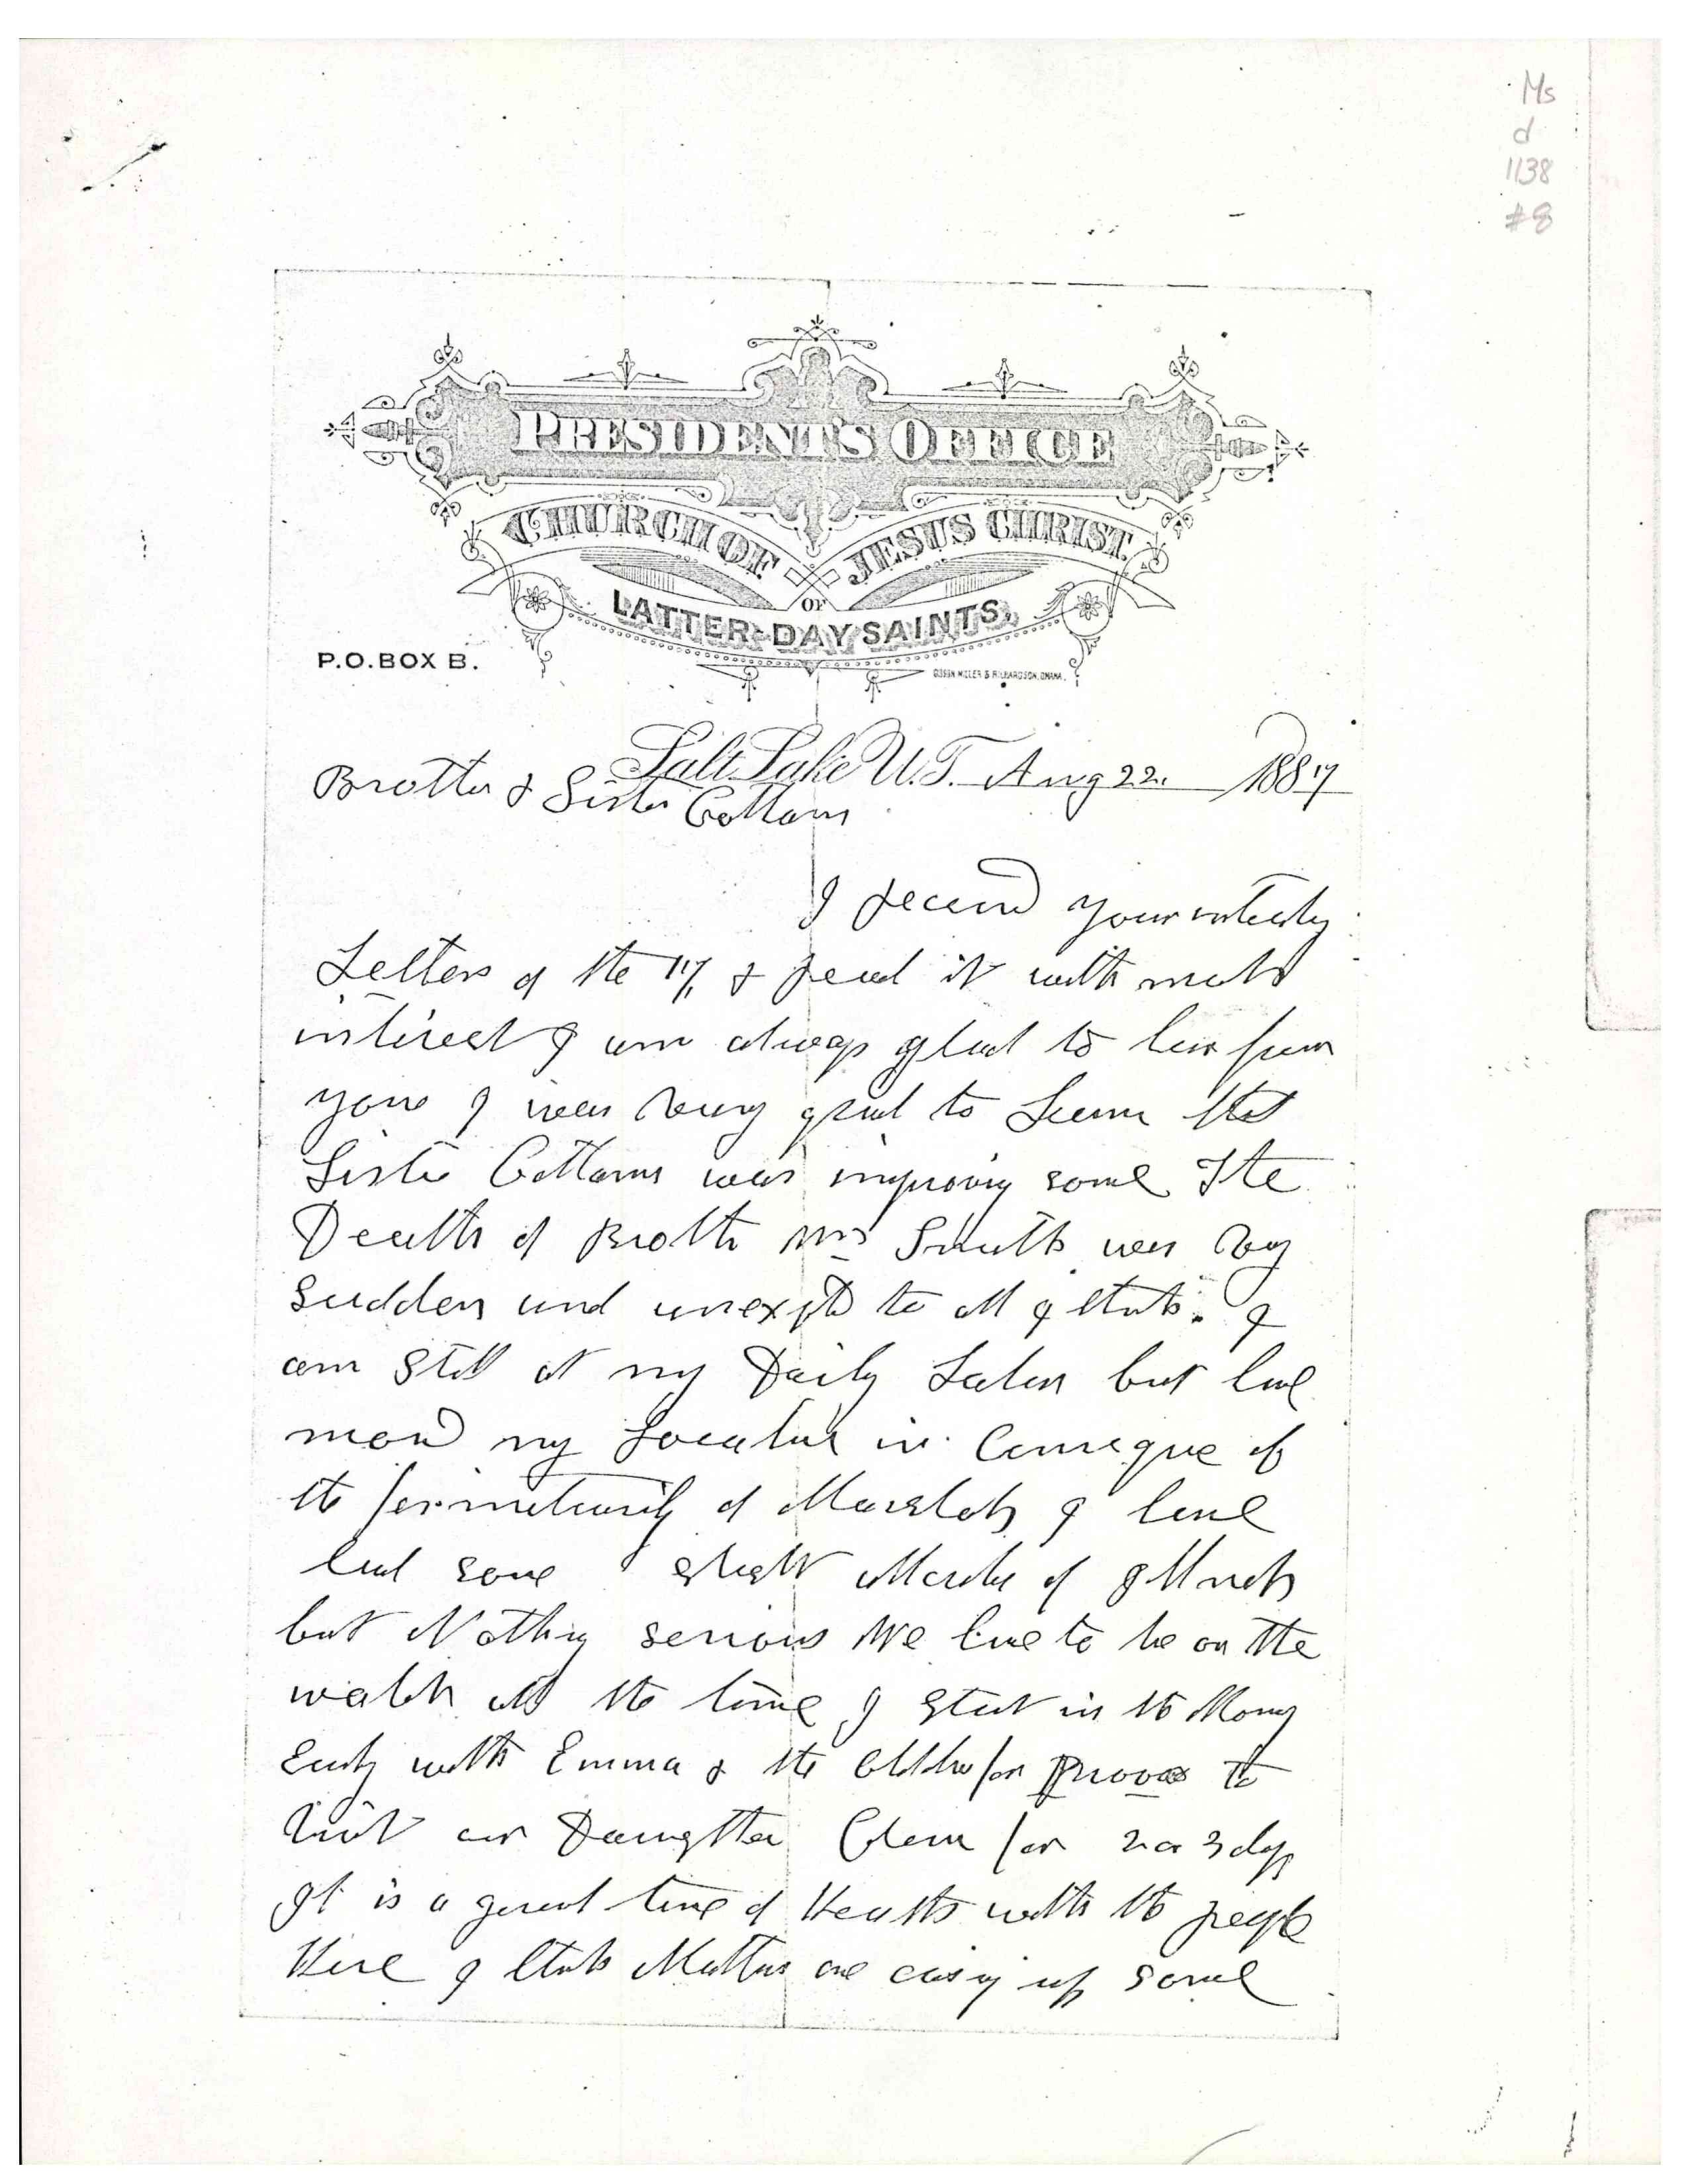 Ms
d
1138
#8
PRESIDENT'S OFFICE
CHURCH OF JESUS CHRIST
OF
LATTER-DAY SAINTS,
P.O. BOX B.
Salt Lake U.T. Aug 22. 1887
Brother & Sister Cottam
I received your
Letters of the 17, & read it with much
interest I am always glad to hear from
you I was very glad to Learn that
Sister Cottam was improving some The
Death of Brother Wm Smith was very
sudden and to all of
am still at my Daily Labor but have
moved my Location in of
the of Marshals I have
had some slight
but Nothing serious We have to be on the
watch all the time I start in the Morning
Early with Emma & the Children for Provo to
visit our Daughter Clara for 2 or 3 days
It is a general time of Health with the people
Here I think Matters are easing up some